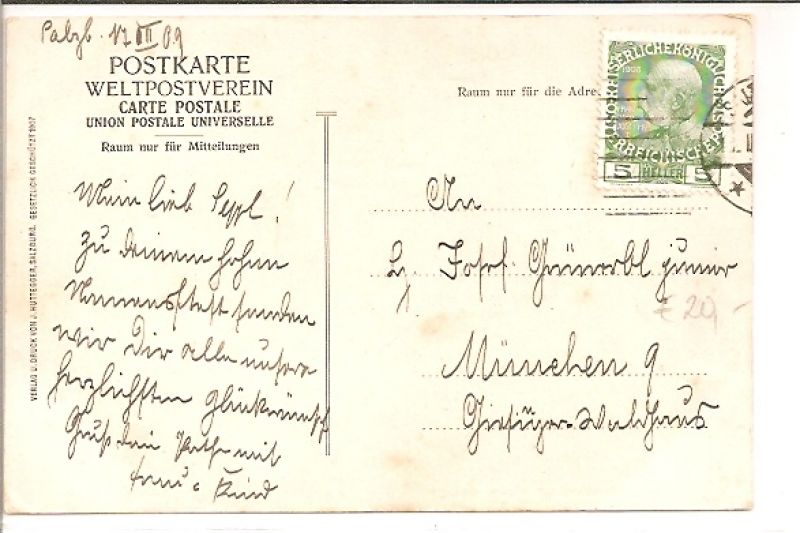 Salzb. 17 III 09
POSTKARTE
WELTPOSTVEREIN
CARTE POSTALE
UNION POSTALE UNIVERSELLE
Raum nur für Mitteilungen
Raum nur für die Adre
1908
5 HELLER 5
VERLAG U. DRUCK VON J. HUTTEGGER, SALZBURG. GESETZLICH GESCHÜTZT 1907
Mein lieb Seppl!
Zu deinem hohen
Namensfest senden
wir Dir alle unsere
herzlichsten Glückwünsche
Gruß dein Pathe mit
Frau u. Kind
An
Josef junior
München 9
Waldhaus
€ 20,-